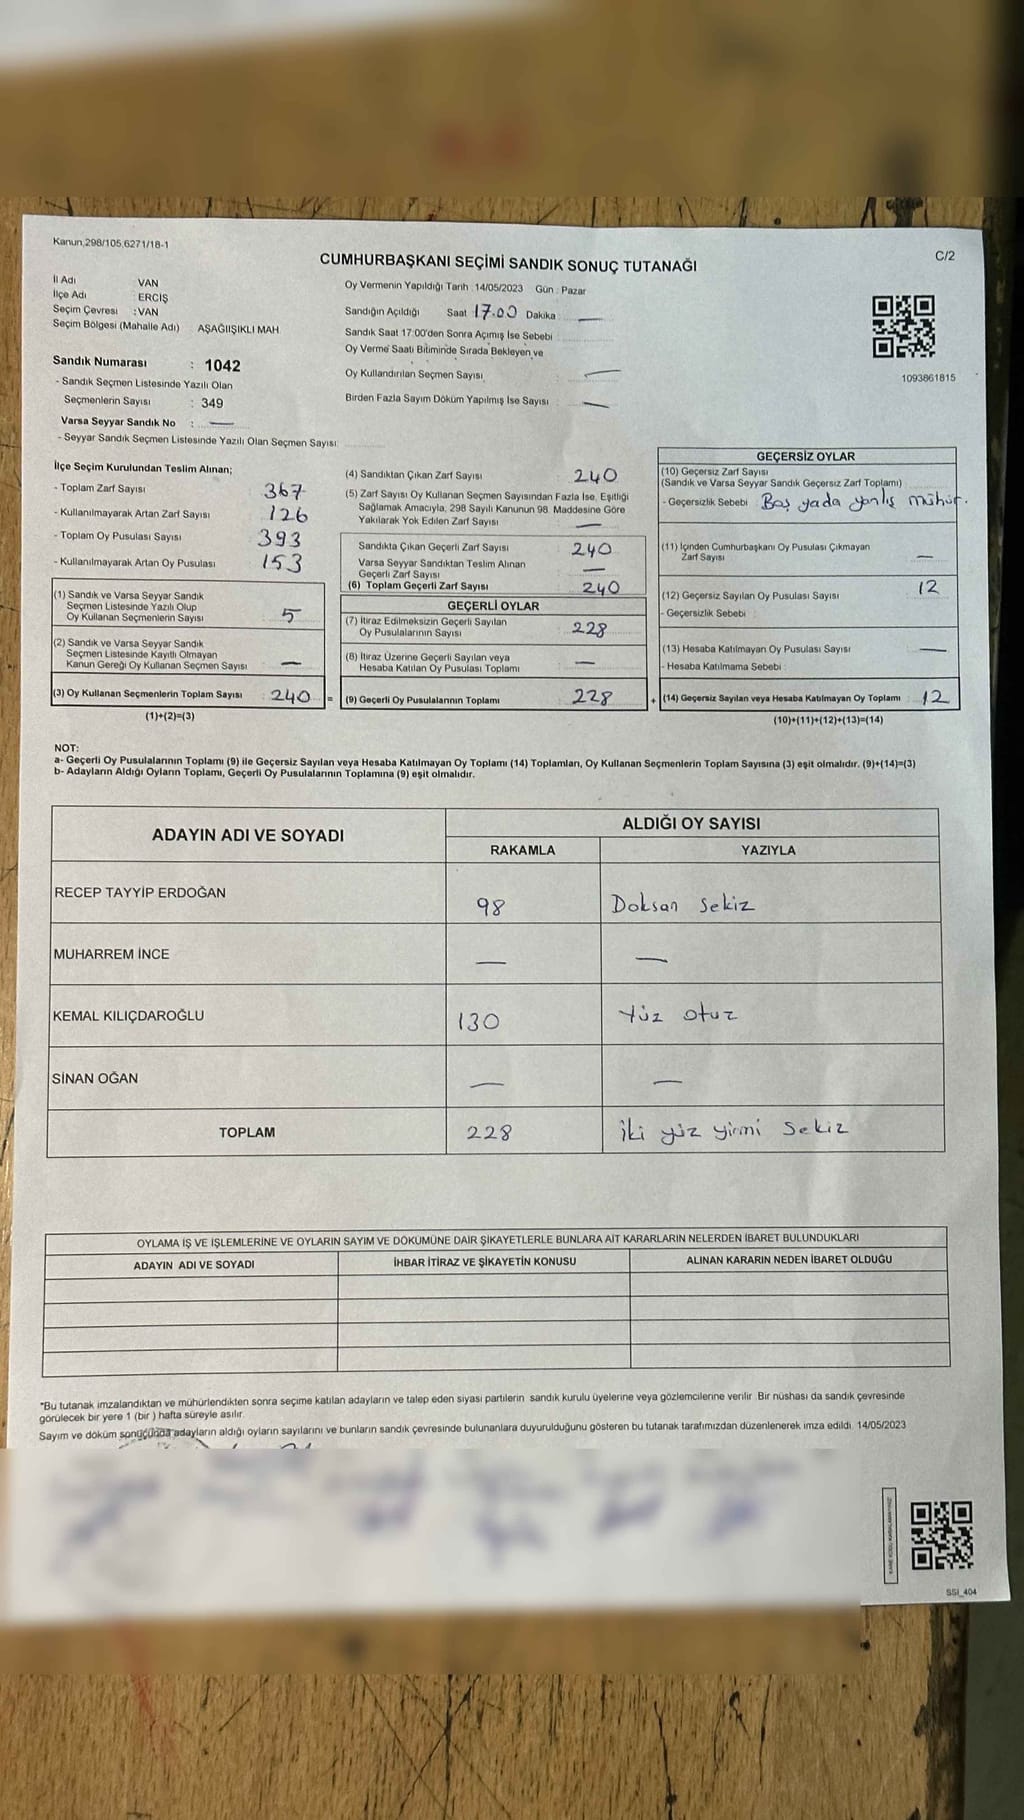 Kanun,298/105,6271/18-1
C/2
CUMHURBAŞKANI SEÇİMİ SANDIK SONUÇ TUTANAĞI
İl Adı VAN
İlçe Adı ERCİŞ
Seçim Çevresi :VAN
Seçim Bölgesi (Mahalle Adı) AŞAĞIIŞIKLI MAH
Sandık Numarası : 1042
- Sandık Seçmen Listesinde Yazılı Olan
Seçmenlerin Sayısı : 349
Varsa Seyyar Sandık No : —
- Seyyar Sandık Seçmen Listesinde Yazılı Olan Seçmen Sayısı:
Oy Vermenin Yapıldığı Tarih :14/05/2023 Gün : Pazar
Sandığın Açıldığı Saat 17.00 Dakika : —
Sandık Saat 17:00'den Sonra Açımış İse Sebebi
Oy Verme Saati Bitiminde Sırada Bekleyen ve
Oy Kullandırılan Seçmen Sayısı —
Birden Fazla Sayım Döküm Yapılmış İse Sayısı : —
1093861815
İlçe Seçim Kurulundan Teslim Alınan;
- Toplam Zarf Sayısı 367
- Kullanılmayarak Artan Zarf Sayısı 126
- Toplam Oy Pusulası Sayısı 393
- Kullanılmayarak Artan Oy Pusulası 153
(1) Sandık ve Varsa Seyyar Sandık
Seçmen Listesinde Yazılı Olup
Oy Kullanan Seçmenlerin Sayısı : 5
(2) Sandık ve Varsa Seyyar Sandık
Seçmen Listesinde Kayıtlı Olmayan
Kanun Gereği Oy Kullanan Seçmen Sayısı : —
(3) Oy Kullanan Seçmenlerin Toplam Sayısı : 240 =
(1)+(2)=(3)
(4) Sandıktan Çıkan Zarf Sayısı 240
(5) Zarf Sayısı Oy Kullanan Seçmen Sayısından Fazla İse, Eşitliği
Sağlamak Amacıyla, 298 Sayılı Kanunun 98. Maddesine Göre
Yakılarak Yok Edilen Zarf Sayısı —
Sandıkta Çıkan Geçerli Zarf Sayısı 240
Varsa Seyyar Sandıktan Teslim Alınan
Geçerli Zarf Sayısı —
(6) Toplam Geçerli Zarf Sayısı 240
GEÇERLİ OYLAR
(7) İtiraz Edilmeksizin Geçerli Sayılan
Oy Pusulalarının Sayısı 228
(8) İtiraz Üzerine Geçerli Sayılan veya
Hesaba Katılan Oy Pusulası Toplamı —
(9) Geçerli Oy Pusulalarının Toplamı 228 +
GEÇERSİZ OYLAR
(10) Geçersiz Zarf Sayısı
(Sandık ve Varsa Seyyar Sandık Geçersiz Zarf Toplamı)
- Geçersizlik Sebebi Boş yada yanlış mühür.
(11) İçinden Cumhurbaşkanı Oy Pusulası Çıkmayan
Zarf Sayısı —
(12) Geçersiz Sayılan Oy Pusulası Sayısı 12
- Geçersizlik Sebebi :
(13) Hesaba Katılmayan Oy Pusulası Sayısı —
- Hesaba Katılmama Sebebi :
(14) Geçersiz Sayılan veya Hesaba Katılmayan Oy Toplamı : 12
(10)+(11)+(12)+(13)=(14)
NOT:
a- Geçerli Oy Pusulalarının Toplamı (9) ile Geçersiz Sayılan veya Hesaba Katılmayan Oy Toplamı (14) Toplamları, Oy Kullanan Seçmenlerin Toplam Sayısına (3) eşit olmalıdır. (9)+(14)=(3)
b- Adayların Aldığı Oyların Toplamı, Geçerli Oy Pusulalarının Toplamına (9) eşit olmalıdır.
ADAYIN ADI VE SOYADI ALDIĞI OY SAYISI
RAKAMLA YAZIYLA
RECEP TAYYİP ERDOĞAN 98 Doksan sekiz
MUHARREM İNCE — —
KEMAL KILIÇDAROĞLU 130 Yüz otuz
SİNAN OĞAN — —
TOPLAM 228 iki yüz yirmi sekiz
OYLAMA İŞ VE İŞLEMLERİNE VE OYLARIN SAYIM VE DÖKÜMÜNE DAİR ŞİKAYETLERLE BUNLARA AİT KARARLARIN NELERDEN İBARET BULUNDUKLARI
ADAYIN ADI VE SOYADI İHBAR İTİRAZ VE ŞİKAYETİN KONUSU ALINAN KARARIN NEDEN İBARET OLDUĞU
*Bu tutanak imzalandıktan ve mühürlendikten sonra seçime katılan adayların ve talep eden siyasi partilerin sandık kurulu üyelerine veya gözlemcilerine verilir. Bir nüshası da sandık çevresinde
görülecek bir yere 1 (bir ) hafta süreyle asılır.
Sayım ve döküm sonucunda adayların aldığı oyların sayılarını ve bunların sandık çevresinde bulunanlara duyurulduğunu gösteren bu tutanak tarafımızdan düzenlenerek imza edildi. 14/05/2023
SSI_404